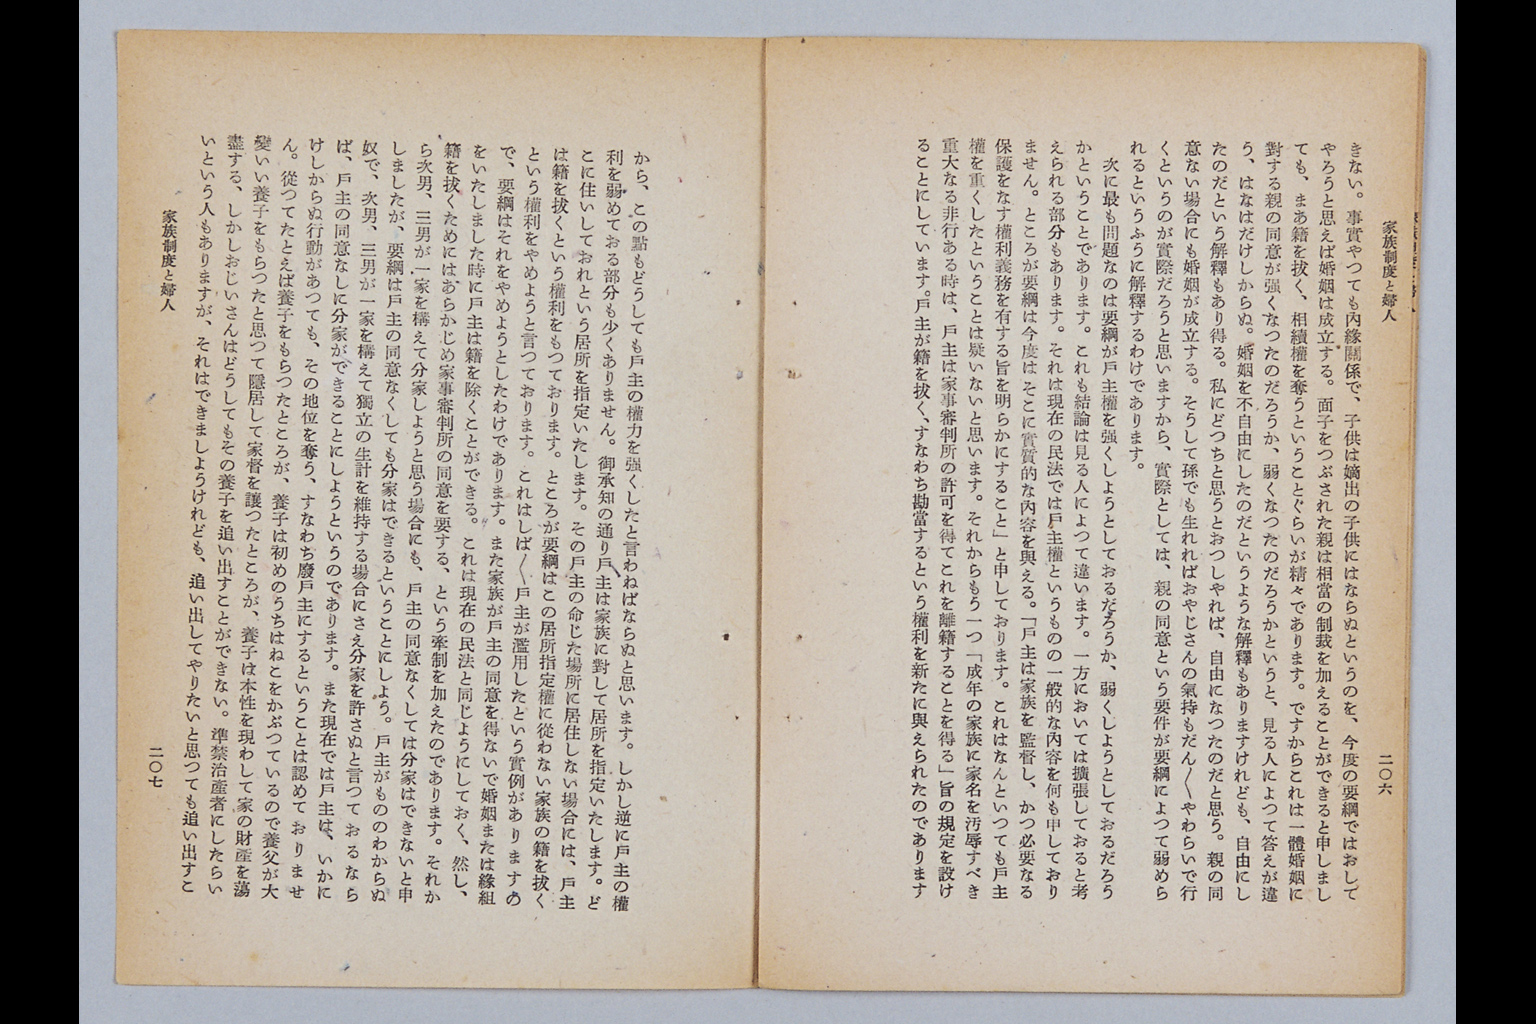 家族制度と婦人
二〇六
きない。事實やつても內緣關係で、子供は嫡出の子供にはならぬというのを、今度の要綱ではおして
やろうと思えば婚姻は成立する。面子をつぶされた親は相當の制裁を加えることができると申しまし
ても、まあ籍を拔く、相續權を奪うということぐらいが精々であります。ですからこれは一體婚姻に
對する親の同意が强くなつたのだろうか、弱くなつたのだろうかというと、見る人によつて答えが違
う、はなはだけしからぬ。婚姻を不自由にしたのだというような解釋もありますけれども、自由にし
たのだという解釋もあり得る。私にどつちと思うとおつしやれば、自由になつたのだと思う。親の同
意ない場合にも婚姻が成立する。そうして孫でも生れればおやじさんの氣持もだん〱やわらいで行
くというのが實際だろうと思いますから、實際としては、親の同意という要件が要綱によつて弱めら
れるというふうに解釋するわけであります。
次に最も問題なのは要綱が戶主權を强くしようとしておるだろうか、弱くしようとしておるだろう
かということであります。これも結論は見る人によつて違います。一方においては擴張しておると考
えられる部分もあります。それは現在の民法では戶主權というものの一般的な內容を何も申しており
ません。ところが要綱は今度はそこに實質的な內容を與える。「戶主は家族を監督し、かつ必要なる
保護をなす權利義務を有する旨を明らかにすること」と申しております。これはなんといつても戶主
權を重くしたということは疑いないと思います。それからもう一つ「成年の家族に家名を汚辱すべき
重大なる非行ある時は、戶主は家事審判所の許可を得てこれを離籍することを得る」旨の規定を設け
ることにしています。戶主が籍を拔く、すなわち勘當するという權利を新たに與えられたのであります
から、この點もどうしても戶主の權力を强くしたと言わねばならぬと思います。しかし逆に戶主の權
利を弱めておる部分も少くありません。御承知の通り戶主は家族に對して居所を指定いたします。ど
こに住いしておれという居所を指定いたします。その戶主の命じた場所に居住しない場合には、戶主
は籍を拔くという權利をもつております。ところが要綱はこの居所指定權に從わない家族の籍を拔く
という權利をやめようと言つております。これはしば〱戶主が濫用したという實例がありますの
で、要綱はそれをやめようとしたわけであります。また家族が戶主の同意を得ないで婚姻または緣組
をいたしました時に戶主は籍を除くことができる。これは現在の民法と同じようにしておく、然し、
籍を拔くためにはあらかじめ家事審判所の同意を要する、という牽制を加えたのであります。それか
ら次男、三男が一家を構えて分家しようと思う場合にも、戶主の同意なくしては分家はできないと申
しましたが、要綱は戶主の同意なくしても分家はできるということにしよう。戶主がもののわからぬ
奴で、次男、三男が一家を構えて獨立の生計を維持する場合にさえ分家を許さぬと言つておるなら
ば、戶主の同意なしに分家ができることにしようというのであります。また現在では戶主は、いかに
けしからぬ行動があつても、その地位を奪う、すなわち廢戶主にするということは認めておりませ
ん。從つてたとえば養子をもらつたところが、養子は初めのうちはねこをかぶつているので養父が大
變いい養子をもらつたと思つて隱居して家督を讓つたところが、養子は本性を現わして家の財產を蕩
盡する、しかしおじいさんはどうしてもその養子を追い出すことができない。準禁治產者にしたらい
いという人もありますが、それはできましようけれども、追い出してやりたいと思つても追い出すこ
家族制度と婦人
二〇七